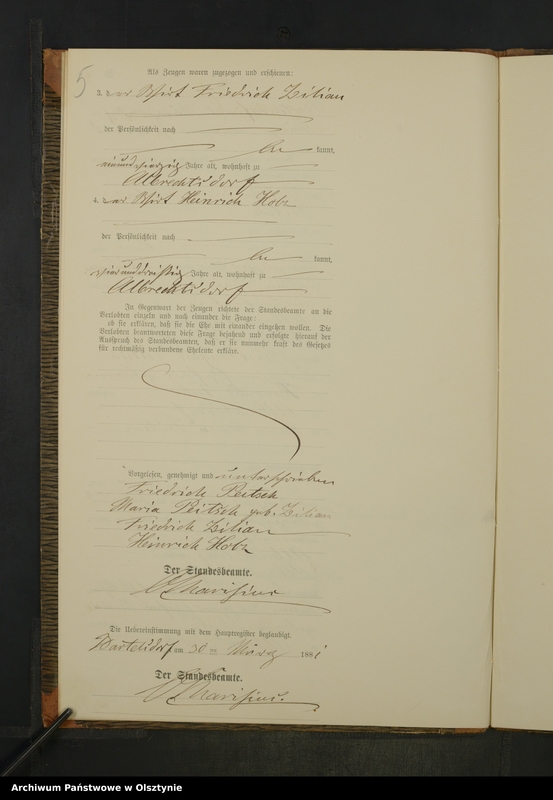 5
Als Zeugen waren zugezogen und erschienen:
3. der Wirt Friedrich Zilian
der Persönlichkeit nach
kannt,
einundvierzig Jahre alt, wohnhaft zu
Albrechtsdorf
4. der Wirt Heinrich Hotz
der Persönlichkeit nach
kannt,
vierunddreißig Jahre alt, wohnhaft zu
Albrechtsdorf
In Gegenwart der Zeugen richtete der Standesbeamte an die
Verlobten einzeln und nach einander die Frage:
ob sie erklären, daß sie die Ehe mit einander eingehen wollen. Die
Verlobten beantworteten diese Frage bejahend und erfolgte hierauf der
Ausspruch des Standesbeamten, daß er sie nunmehr kraft des Gesetzes
für rechtmäßig verbundene Eheleute erkläre.
Vorgelesen, genehmigt und unterschrieben
Friedrich Peitsch
Maria Peitsch geb. Zilian
Friedrich Zilian
Heinrich Hotz
Der Standesbeamte.
Die Uebereinstimmung mit dem Hauptregister beglaubigt.
Bartelsdorf am 30 ten März 1881
Der Standesbeamte.
Archiwum Państwowe w Olsztynie